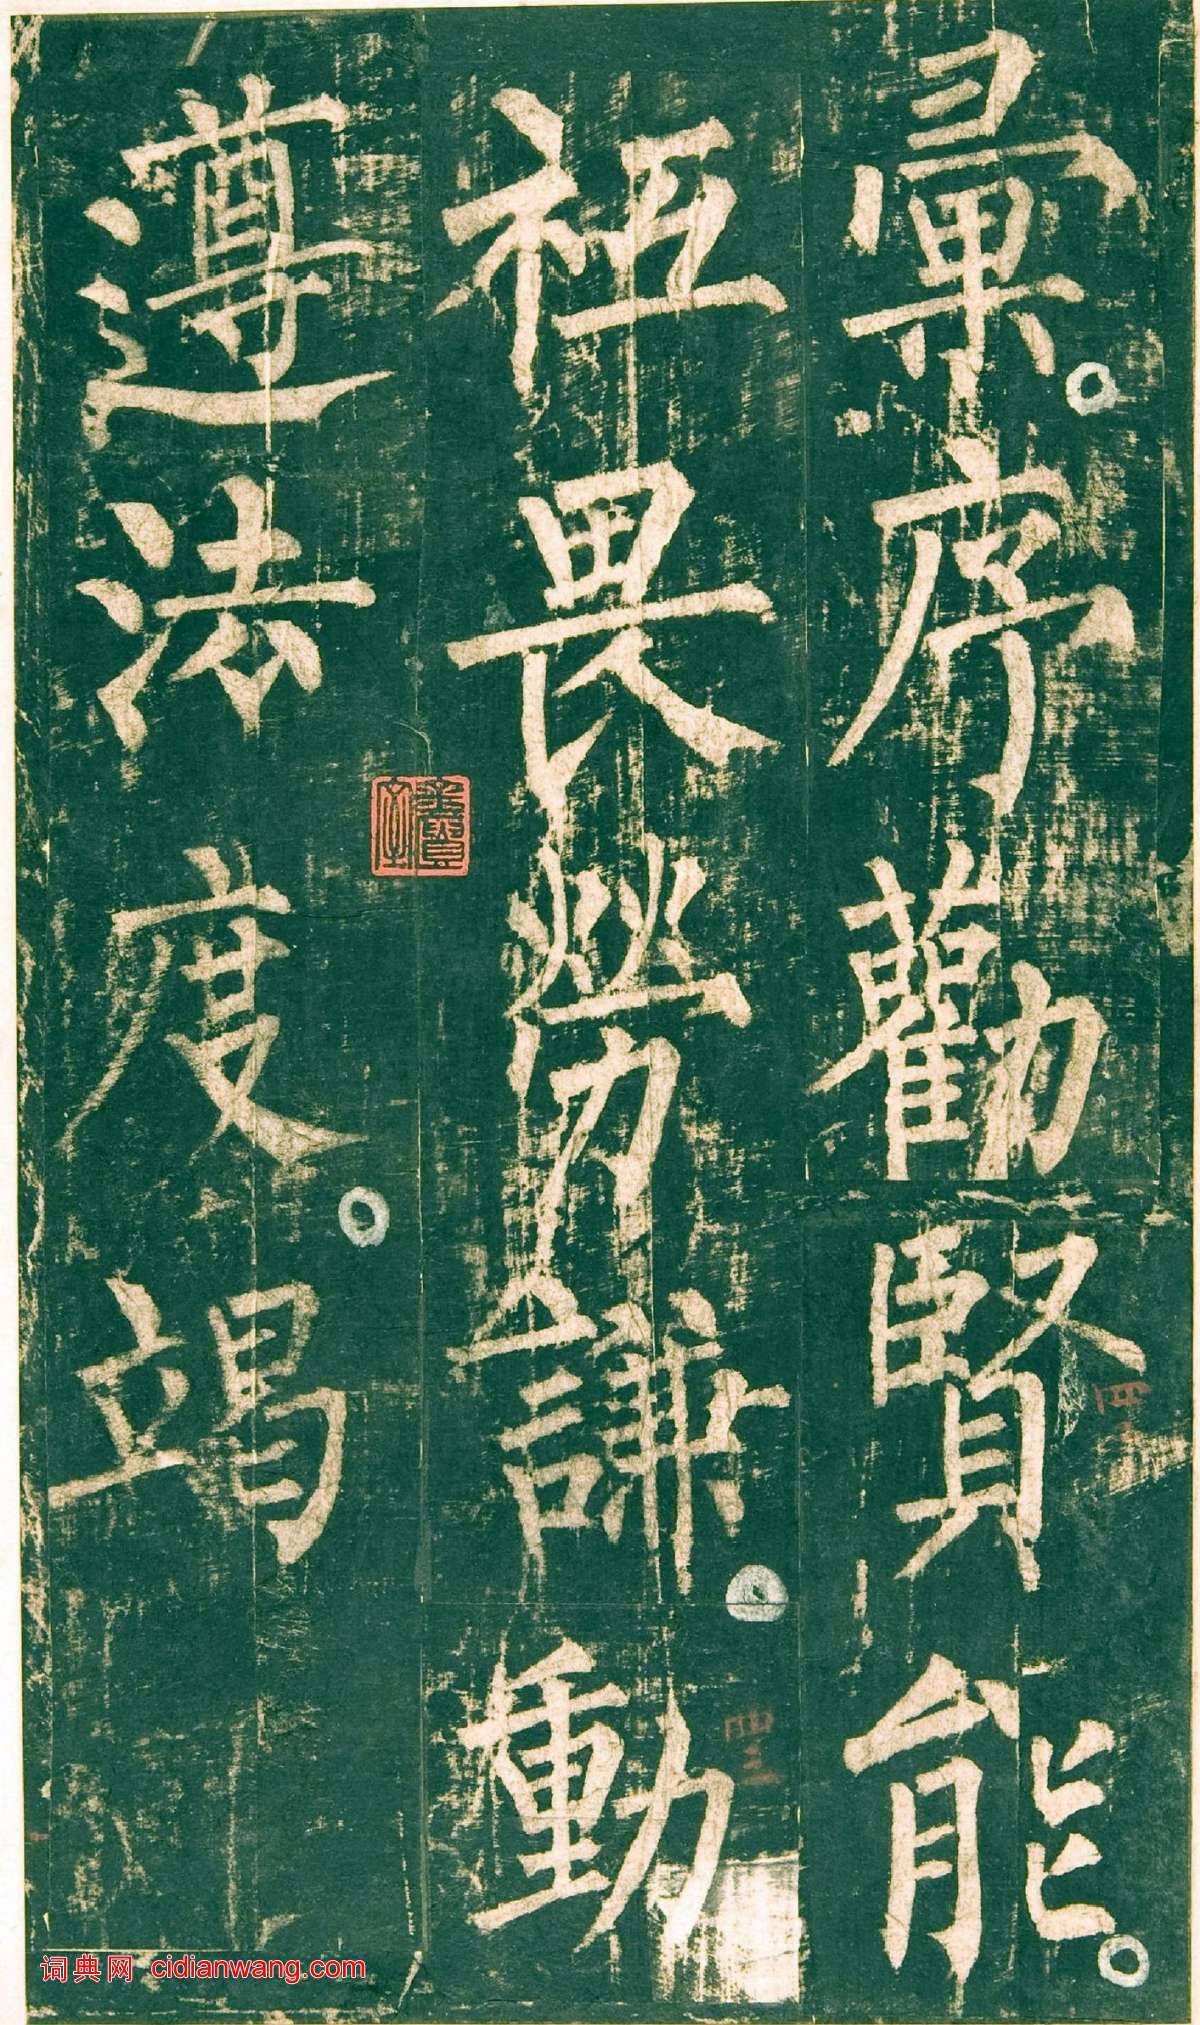 彙序勸賢能
祗畏勞謙動
遵法度竭
词典网 cidianwang.com